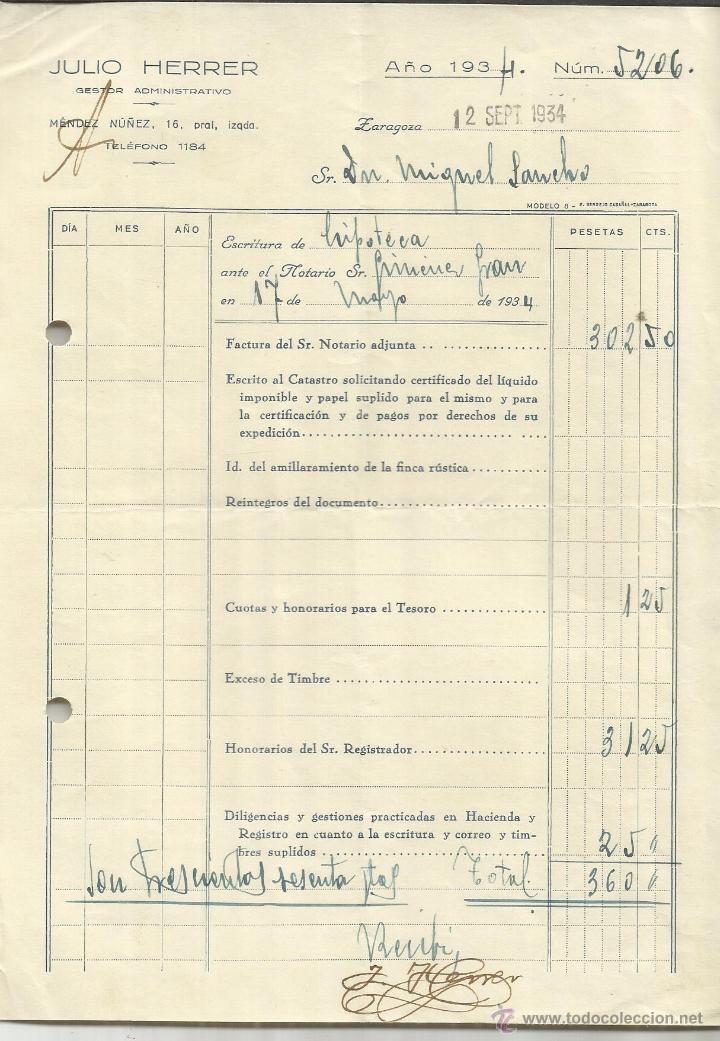 JULIO HERRER
GESTOR ADMINISTRATIVO
MÉNDEZ NÚÑEZ, 16, pral, izqda.
TELÉFONO 1184
Año 1934. Núm. 5206.
Zaragoza 12 SEPT. 1934
Sr. Dn. Miguel Sancho
MODELO 8 -
DÍA MES AÑO PESETAS CTS.
Escritura de hipoteca
ante el Notario Sr. Giménez Gran
en 17 de Mayo de 1934
Factura del Sr. Notario adjunta 302 50
Escrito al Catastro solicitando certificado del líquido
imponible y papel suplido para el mismo y para
la certificación y de pagos por derechos de su
expedición
Id. del amillaramiento de la finca rústica
Reintegros del documento
Cuotas y honorarios para el Tesoro 1 25
Exceso de Timbre
Honorarios del Sr. Registrador 31 25
Diligencias y gestiones practicadas en Hacienda y
Registro en cuanto a la escritura y correo y tim-
bres suplidos 25 "
Son trescientas sesenta ptas Total. 360 "
Recibí,
J. Herrer
todocoleccion
www.todocoleccion.net